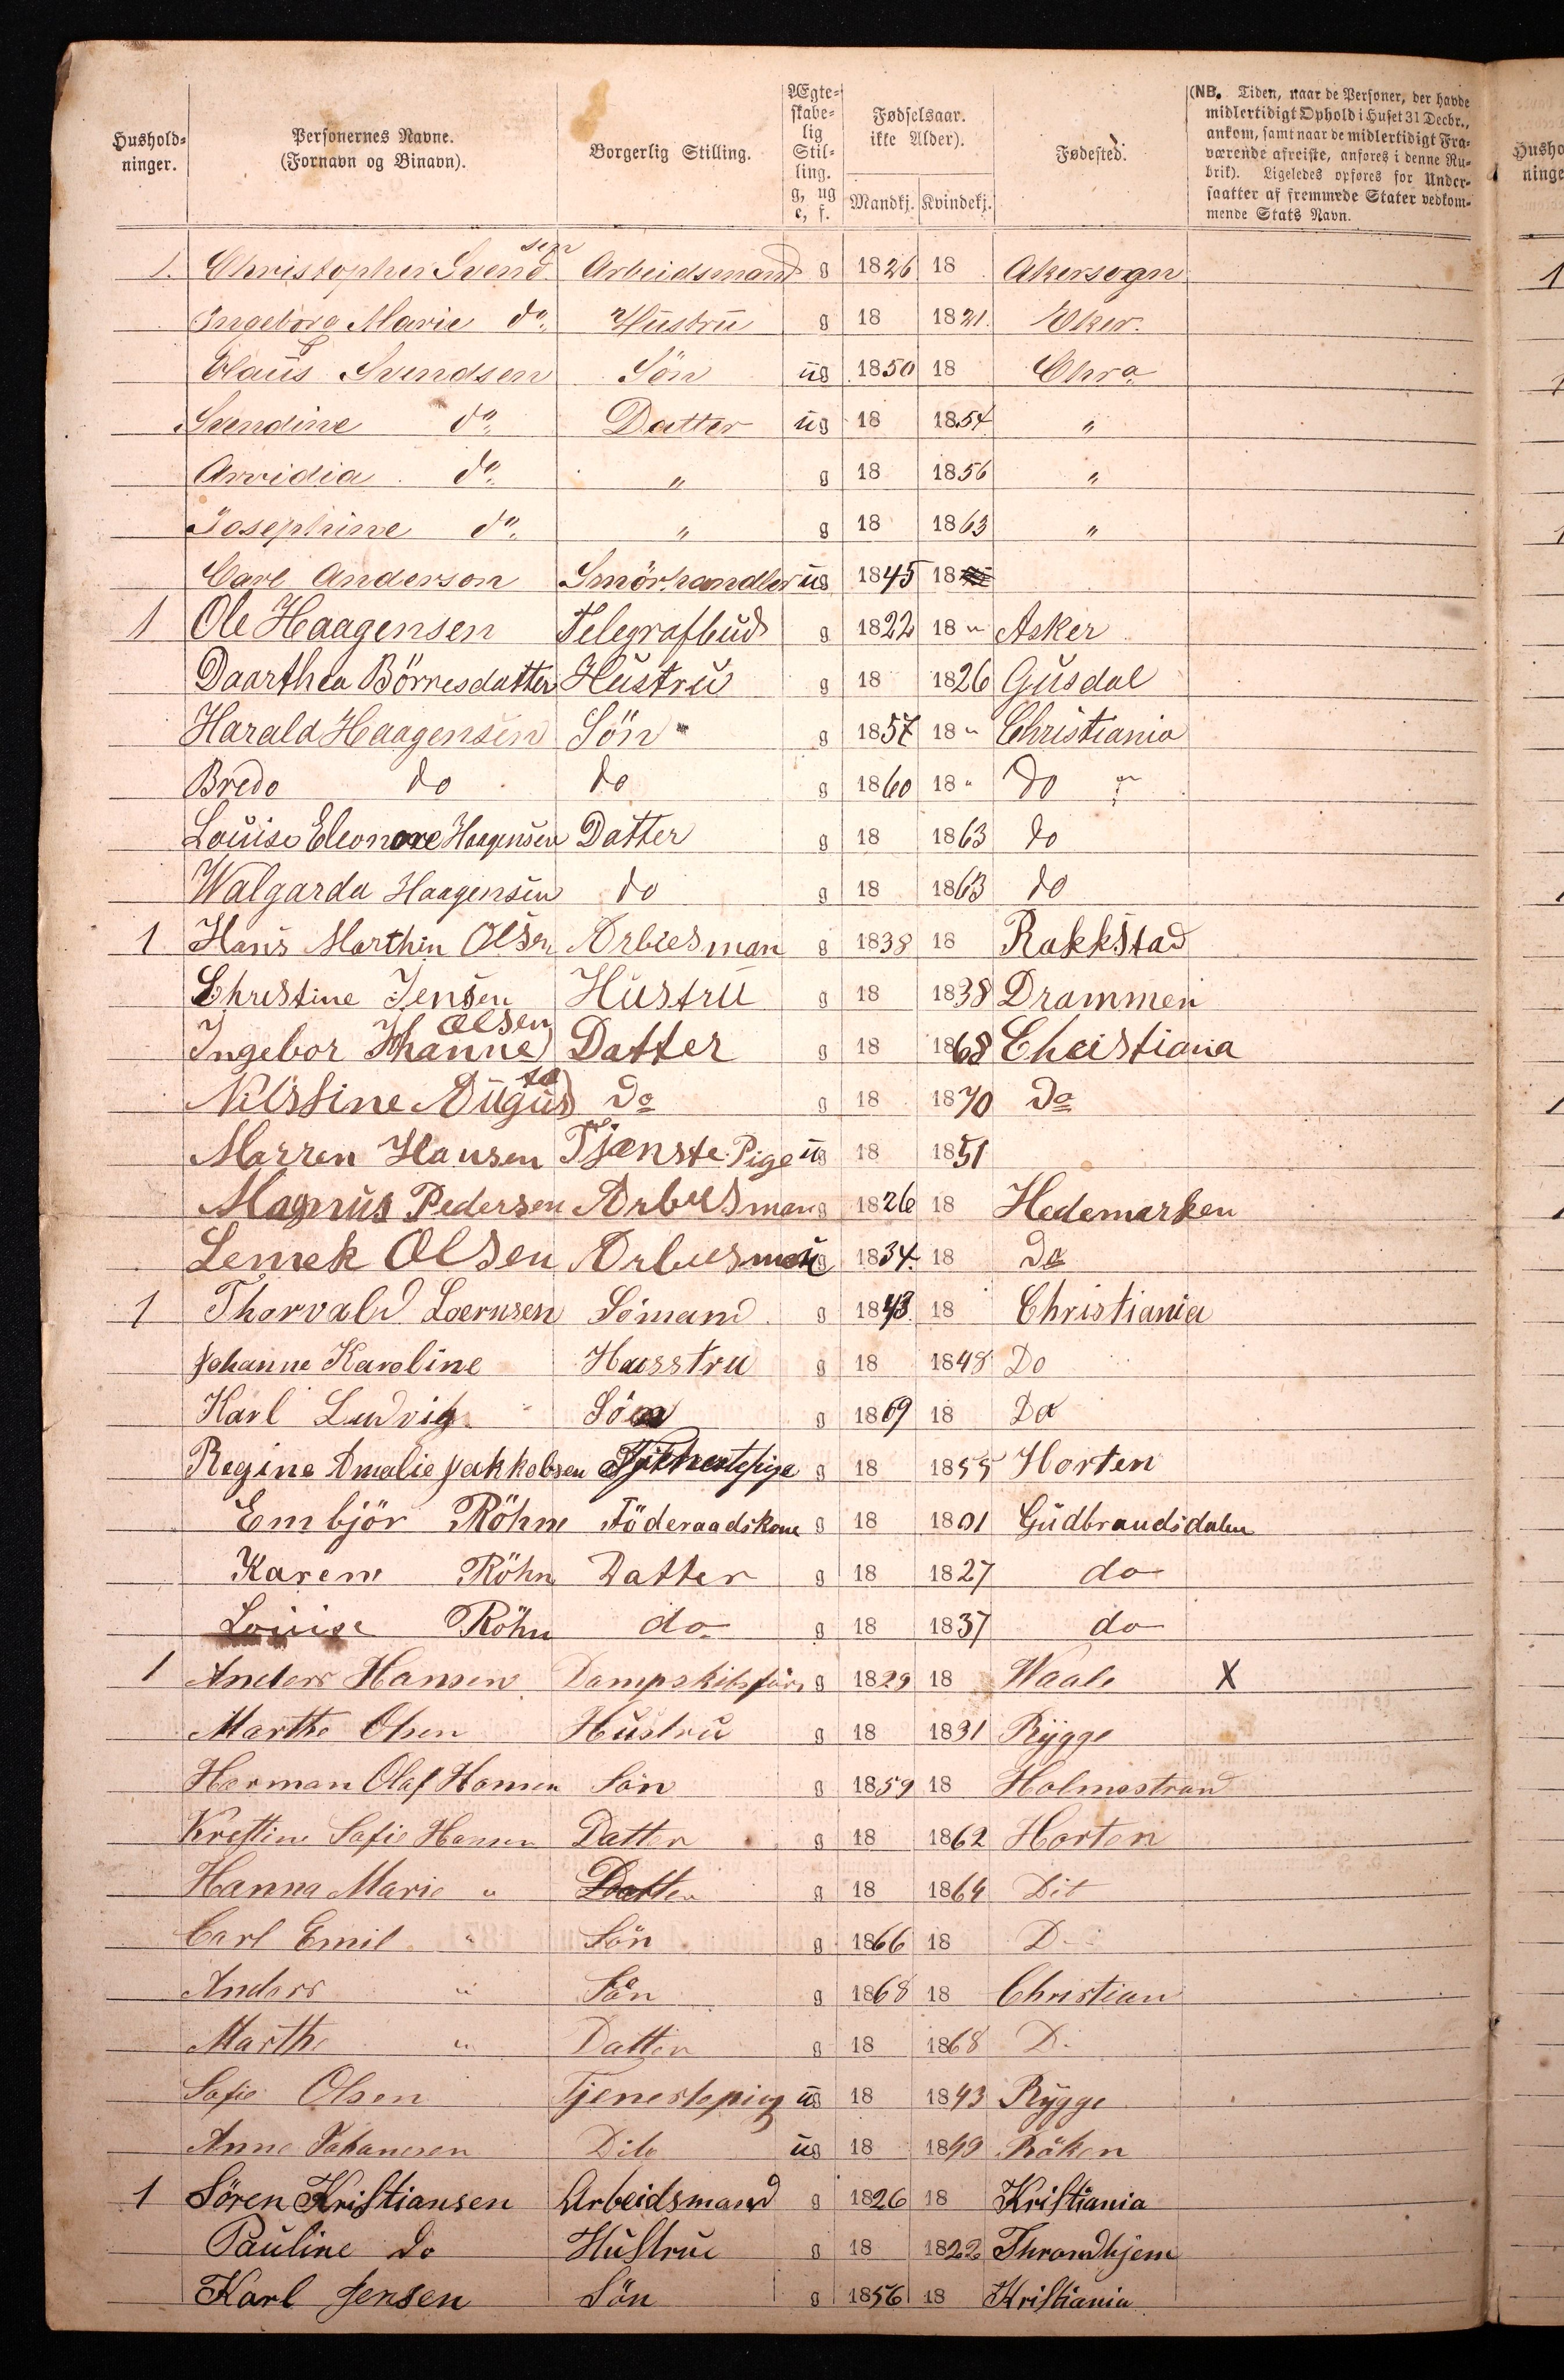 Hushold-ninger. Personernes Navne. (Fornavn og Binavn). Borgerlig Stilling. Ægte-skabe-lig Stil-ling. g, ug e, f. Fødselsaar. ikke Alder). Mandkj. Kvindekj. Fødested. (NB. Tiden, naar de Personer, der havde midlertidigt Ophold i Huset 31 Decbr., ankom, samt naar de midlertidigt Fra-værende afreiste, anføres i denne Ru-brik). Ligeledes opføres for Under-saatter af fremmede Stater vedkom-mende Stats Navn.
1. Christopher Svendsen Arbeidsmand g 1826 18 Akersogn
Ingeborg Marie do. Hustru g 18 1821. Eker.
Olaus Svendsen Sön ug 1850 18 Chra.
Svendine do. Datter ug 18 1854 "
Arvidia do. " g 18 1856 "
Josephine do. " g 18 1863 "
Carl Anderson Smörhandler ug 1845 18
1 Ole Haagensen Telegrafbud g 1822 18 " Asker
Daarthea Börresdatter Hustru g 18 1826 Gusdal
Harald Haagensen Sön g 1857 18 " Christiania
Bredo do do g 1860 18 " do
Louise Eleonore Haagensen Datter g 18 1863 do
Walgarda Haagensen do g 18 1863 do
1 Hans Marthin Olsen Arbiesman g 1838 18 Rakkstad
Christine Jensen Hustru g 18 1838 Drammen
Ingebor Jhanne Olsen Datter g 18 1868 Cheistiana
Nilssine Augusta do g 18 1870 do
Marren Hansen Tjænste Pige ug 18 1851
Magnus Pedersen Arbiesman g 1826 18 Hedemarken
Lemek Olsen Arbiesman ug 1834. 18 do
1 Thorvald Laernsen Sömand g 1843 18 Christiania
Johanne Karoline Husstru g 18 1848 Do
Karl Ludvig Sön g 1869 18 Do
Regine Amalie Jakkobsen Tjenestepige g 18 1855 Horten
Embjör Röhne Föderaadskone g 18 1801 Gudbrandsdalen
Karen Röhn Datter g 18 1827 do
Louise Röhn do g 18 1837 do
1 Anders Hansen Dampskibsförer g 1829 18 Waale X
Marthe Olsen Hustru g 18 1831 Rygge
Herman Olaf Hansen Sön g 1859 18 Holmestrand
Krestine Sofie Hansen Datter g 18 1862 Horten
Hanna Marie " Datter g 18 1864 Dit
Carl Emil " Sön g 1866 18 D.
Anders " Sön g 1868 18 Christian
Marthe " Datter g 18 1868 D.
Sofie Olsen Tjenestepige ug 18 1843 Rygge
Anne Johanesen Dito ug 18 1849 Röken
1 Sören Kristiansen Arbeidsmand g 1826 18 Kristiania
Pauline do Hustrue g 18 1822 Throndhjem
Karl Jensen Sön g 1856 18 Kristiania